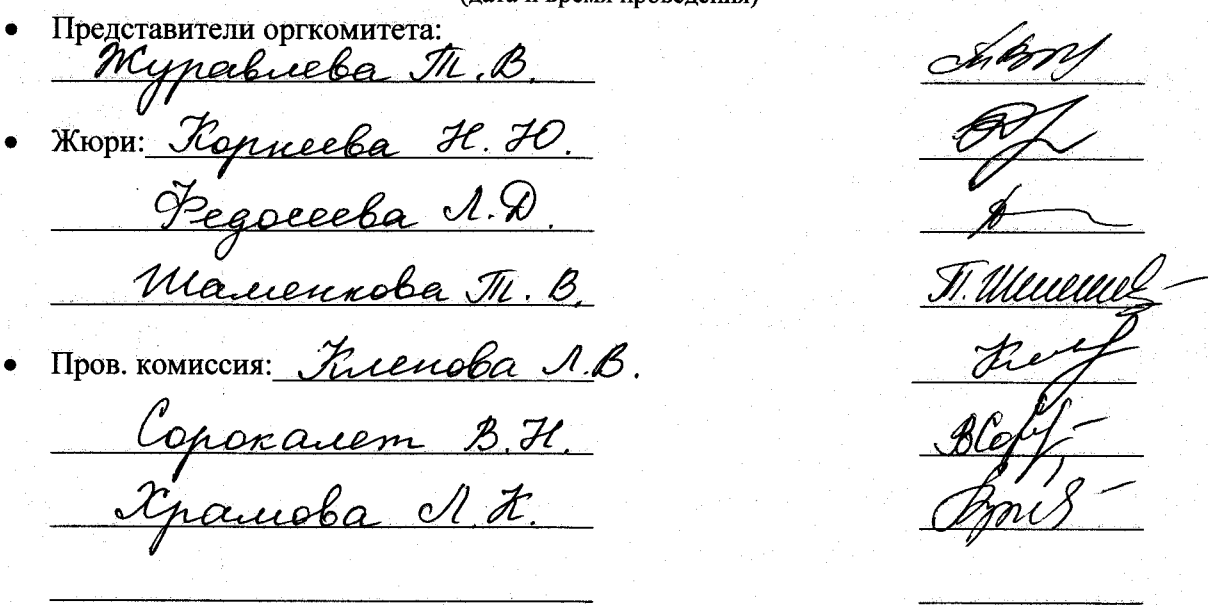 (дата и время проведения)
• Представители оргкомитета:
Журавлева Т. В.
• Жюри: Корнеева Н. Ю.
Федосеева Л. Д.
Шаменкова Т. В.
• Пров. комиссия: Кленова Л. В.
Сорокалет В. Н.
Храмова Л. К.